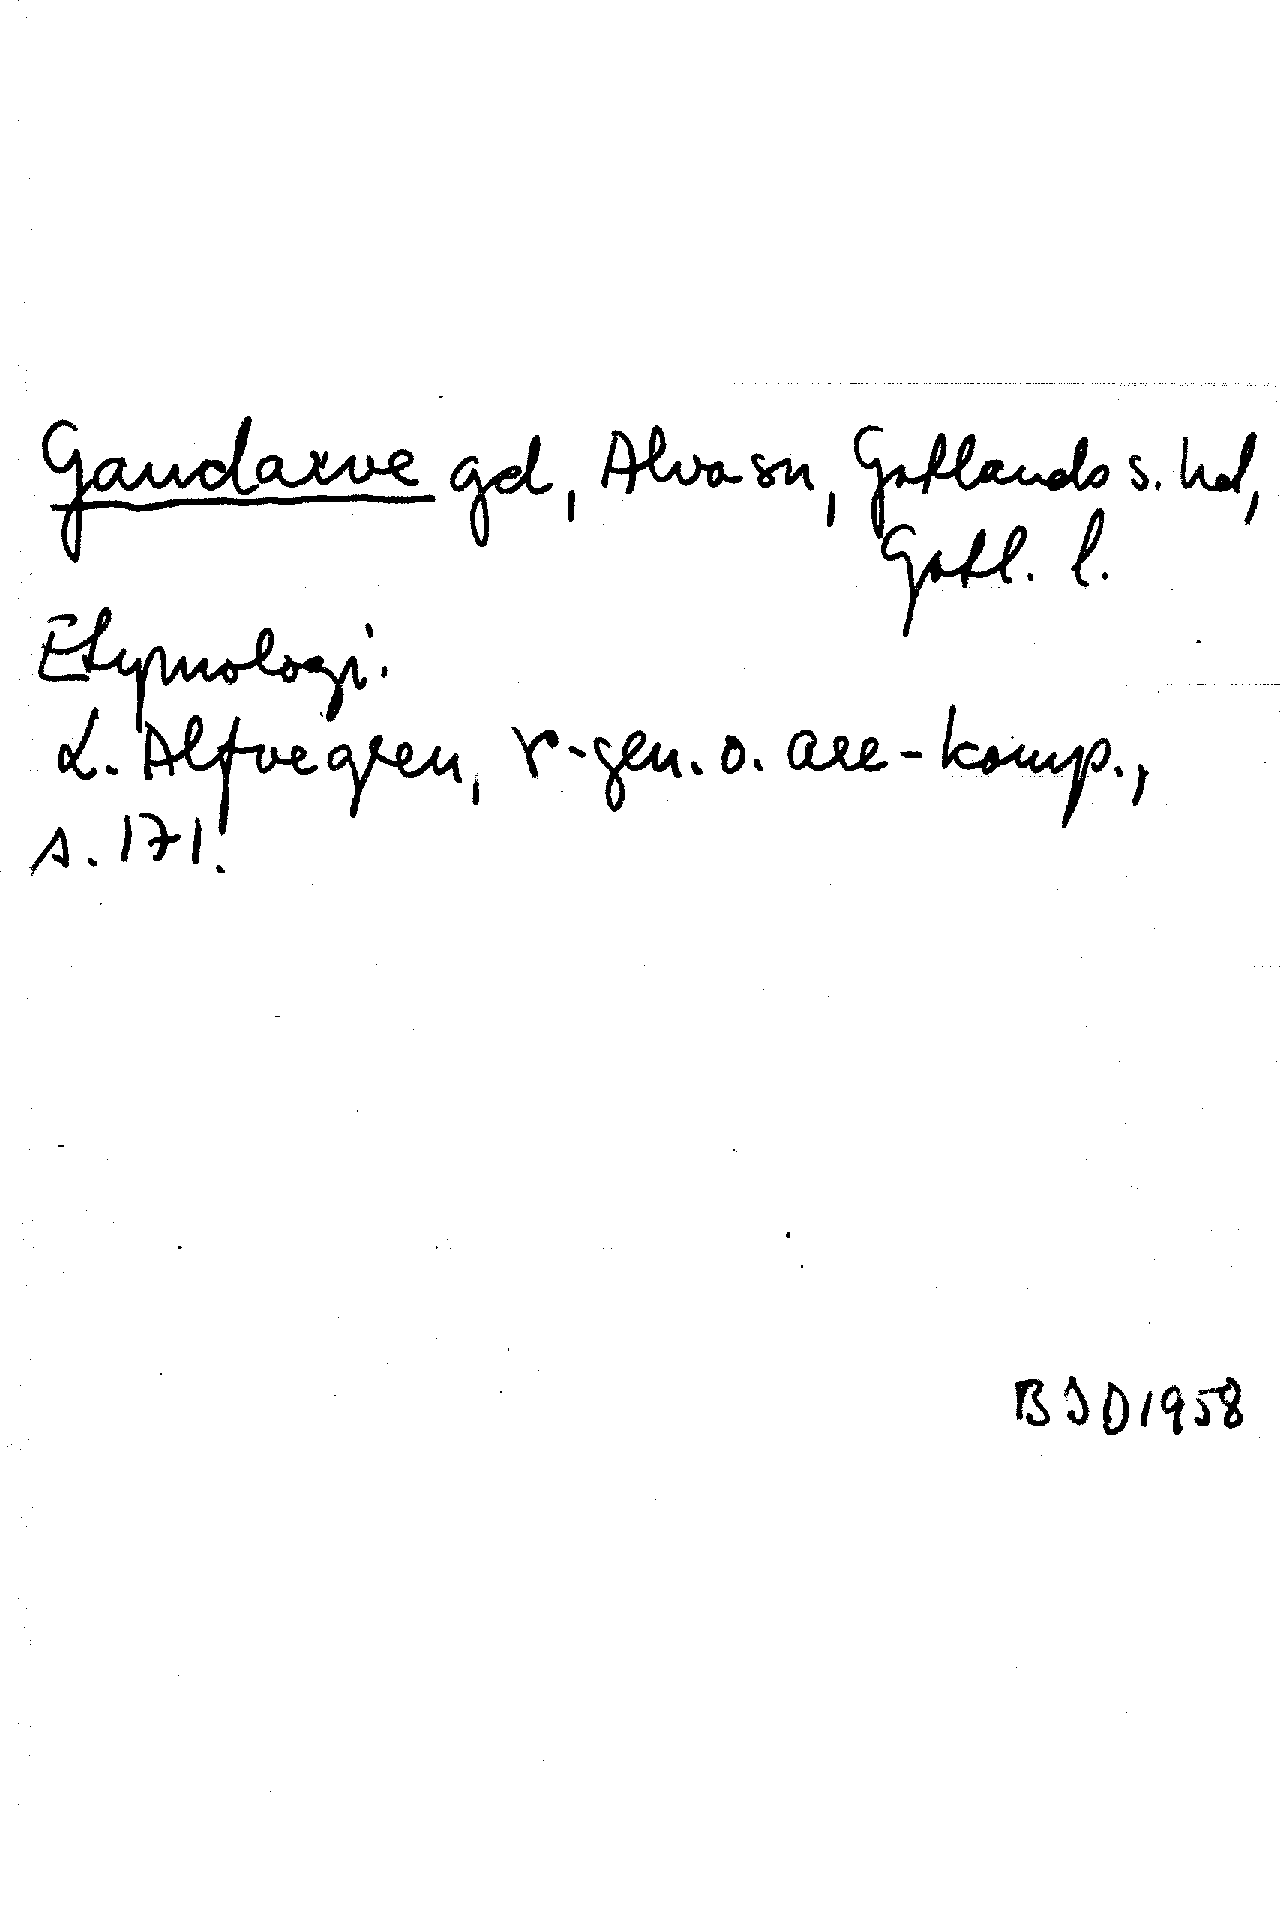 Gandarve gd, Alva sn, Gotlands s. hd,
Gotl. l.
Etymologi.
L. Alfvegren, r-gen. o. are-komp.,
s. 171.
BJD 1958